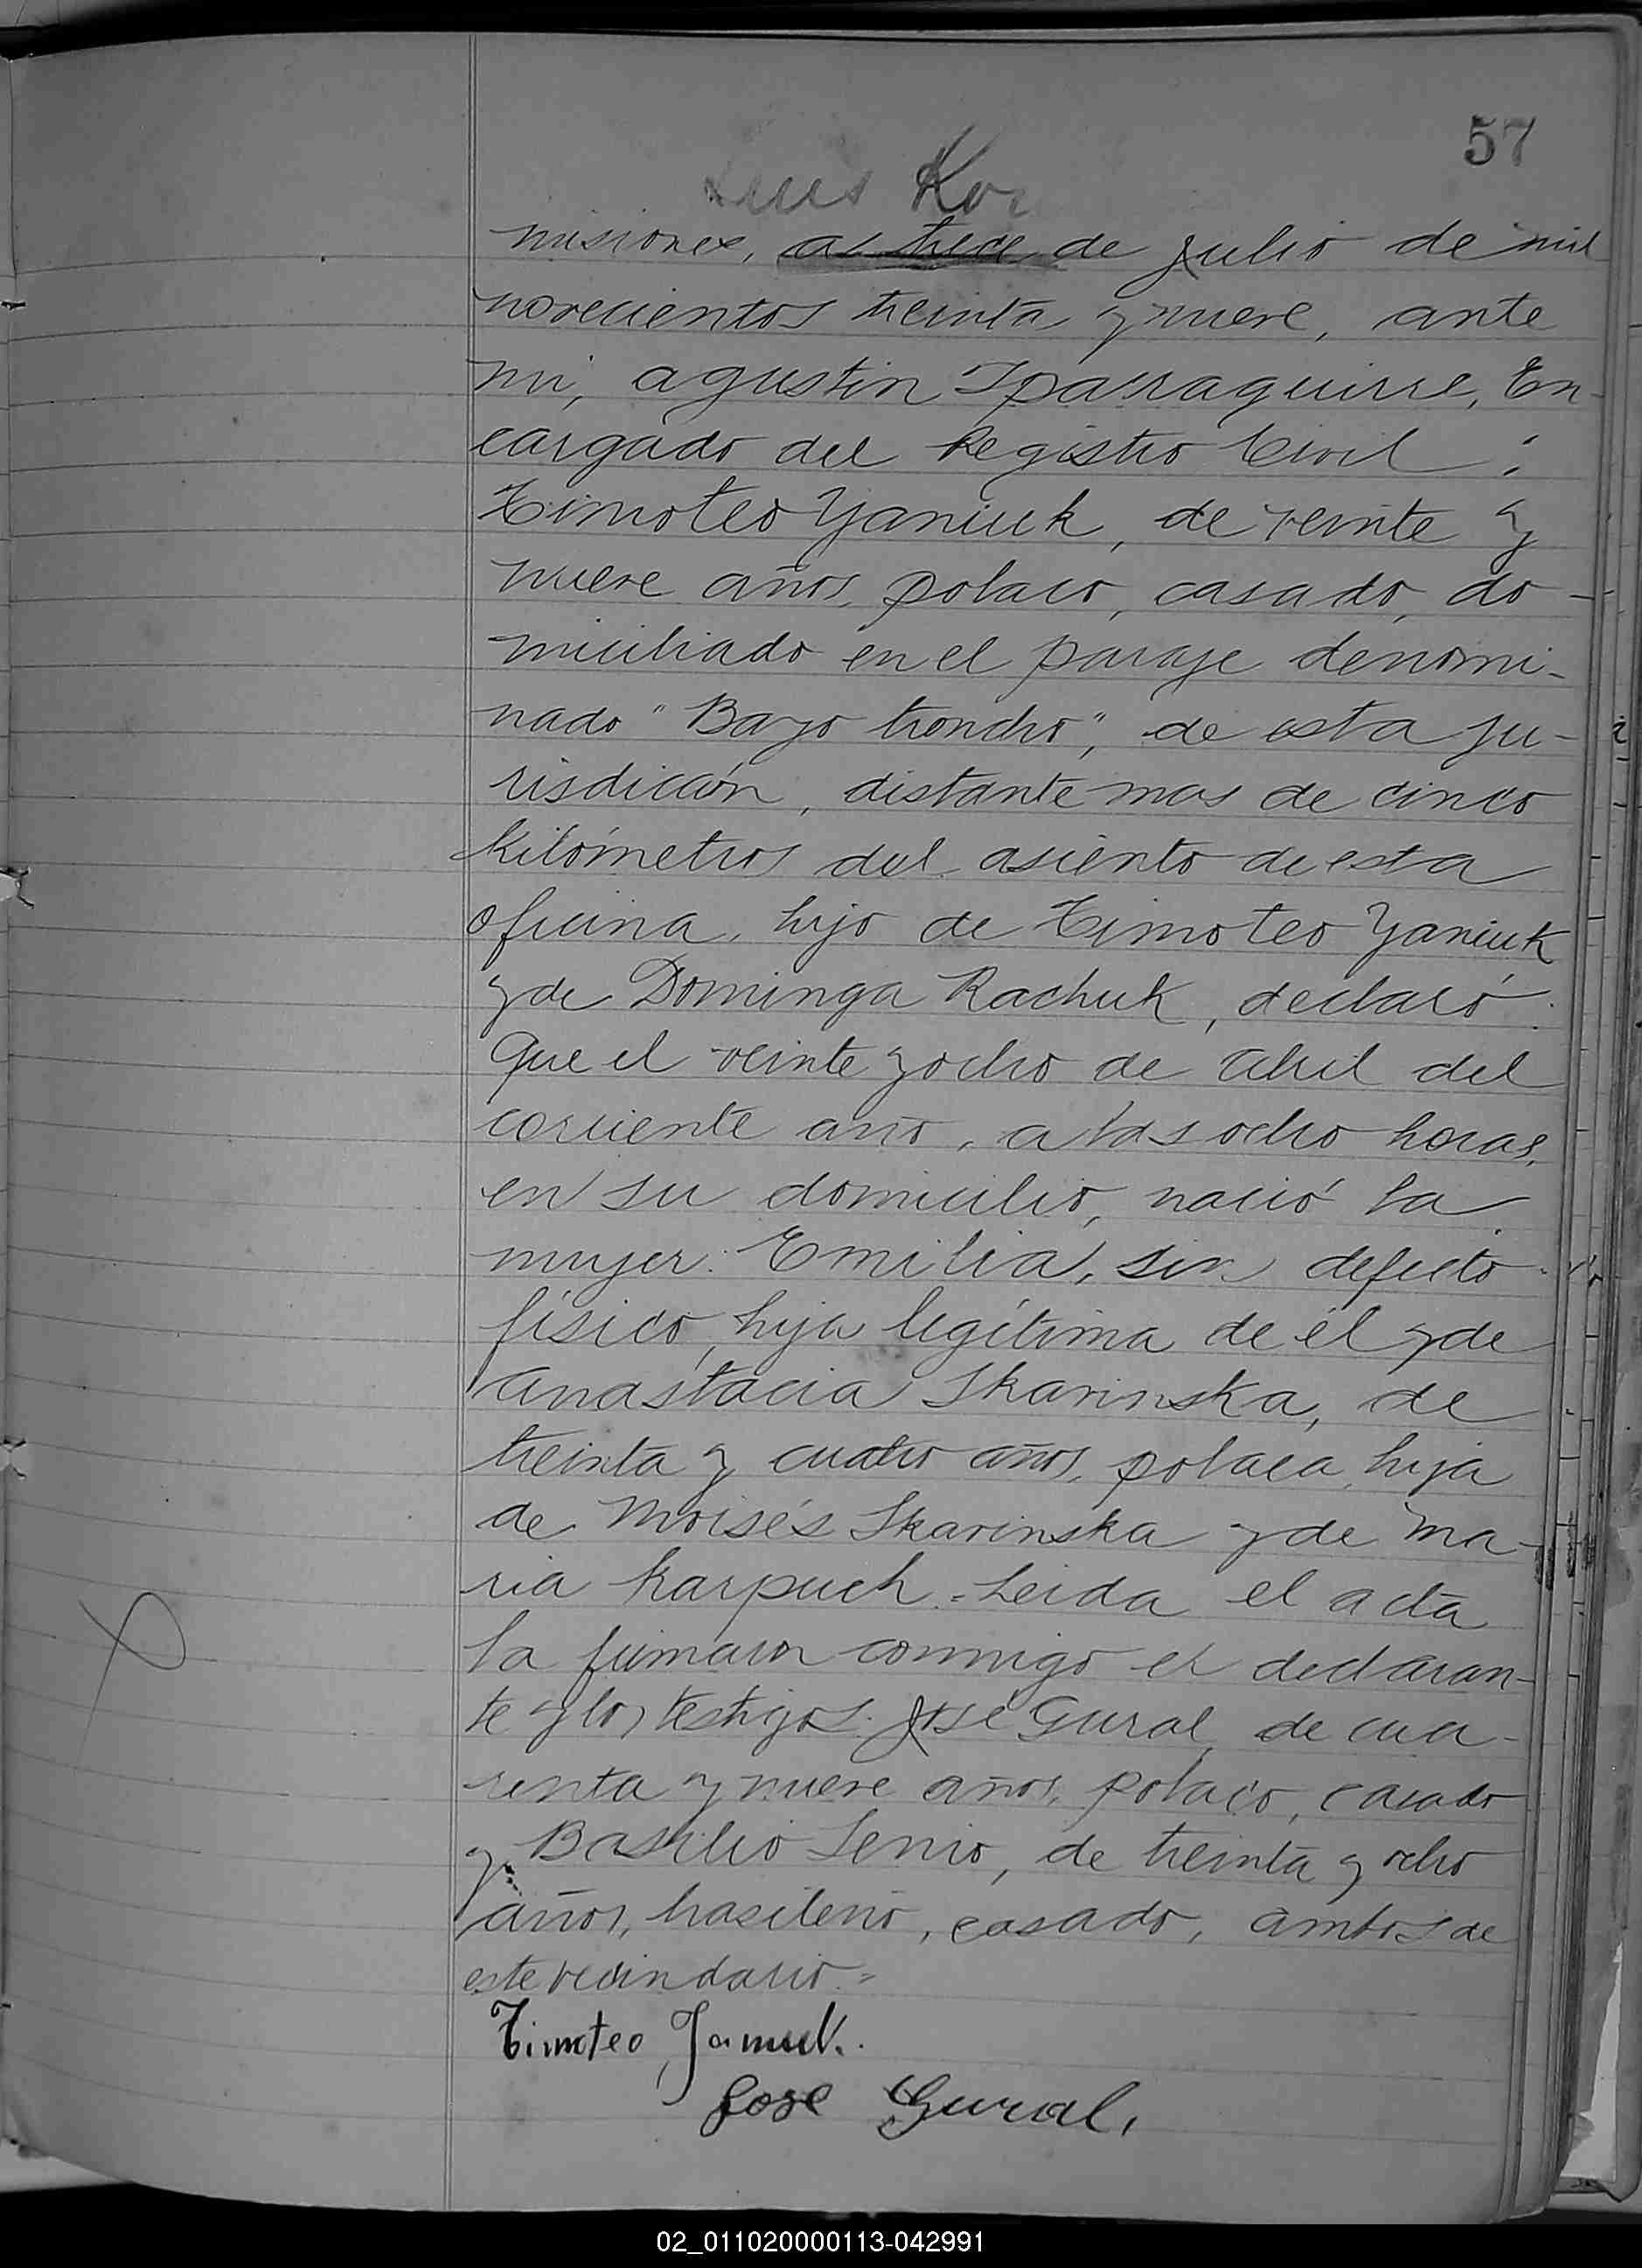 57
Luis Kor
misiones, a trece de Julio de mil
novecientos treinta y nueve, ante
mi, Agustin Yparraguirre, En-
cargado del Registro Civil :
Timoteo Yaniuk, de veinte y
nueve años, polaco, casado, do-
miciliado en el paraje denomi-
nado "Bayo troncho", de esta ju-
risdicción, distante mas de cinco
kilómetros del asiento de esta
oficina, hijo de Timoteo Yaniuk
y de Dominga Rachuk, declaró:
Que el veinte y ocho de Abril del
corriente año, a las ocho horas,
en su domicilio, nació la
mujer: Emilia, sin defecto
físico, hija legítima de él y de
Anastacia Skarinska, de
treinta y cuatro años, polaca, hija
de Moisés Skarinska y de Ma-
ria Karpuch.- Leida el acta
la firmaron conmigo el declaran-
te y los testigos: José Gural, de cua-
renta y nueve años, polaco, casado
y Basilio Senio, de treinta y ocho
años, brasileño, casado, ambos de
este vecindario.=
Timoteo Janiuk.
Jose Gural,
02_011020000113-042991